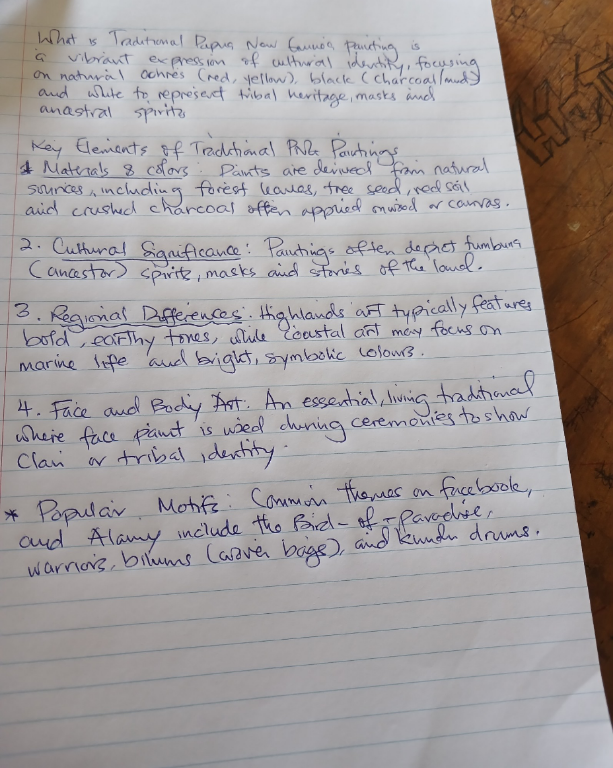 What is Traditional Papua New Guinea Painting is
a vibrant expression of cultural identity, focusing
on natural ochres (red, yellow), black (charcoal/mud)
and white to represent tribal heritage, masks and
anastral spirits
Key Elements of Traditional PNG Paintings
1 Materials & colors: Paints are derived from natural
sources, including forest leaves, tree seed, red soil
and crushed charcoal often applied on wood or canvas.
2. Cultural Significance: Paintings often depict tumbuna
(ancestor) spirits, masks and stories of the land.
3. Regional Differences: Highlands art typically features
bold, earthy tones, while coastal art may focus on
marine life and bright, symbolic colours.
4. Face and Body Art: An essential, living traditional
where face paint is used during ceremonies to show
Clan or tribal identity.
* Popular Motifs: Common themes on facebook,
and Alamy include the Bird-of-Paradise,
warriors, bilums (woven bags), and kundu drums.